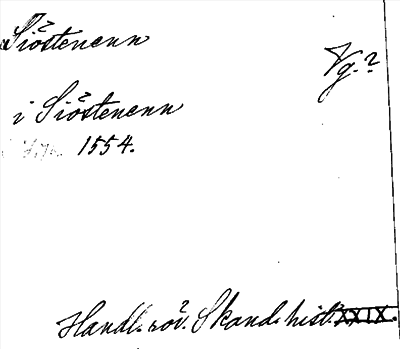 Siöstenenn
Vg.?
i Siöstenenn
1554.
Handl. röv. Skand. hist. XXIX.